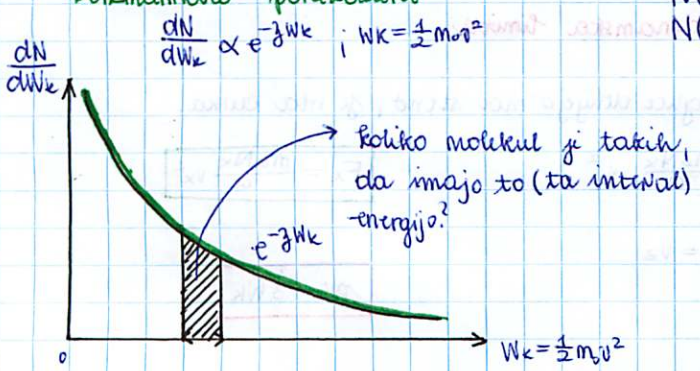 dN/dWk ∝ e^-ζWk ; Wk = 1/2 m₀v²
dN/dWk
koliko molekul je takih,
da imajo to (ta interval)
energijo?
e^-ζWk
0
Wk = 1/2 m₀v²